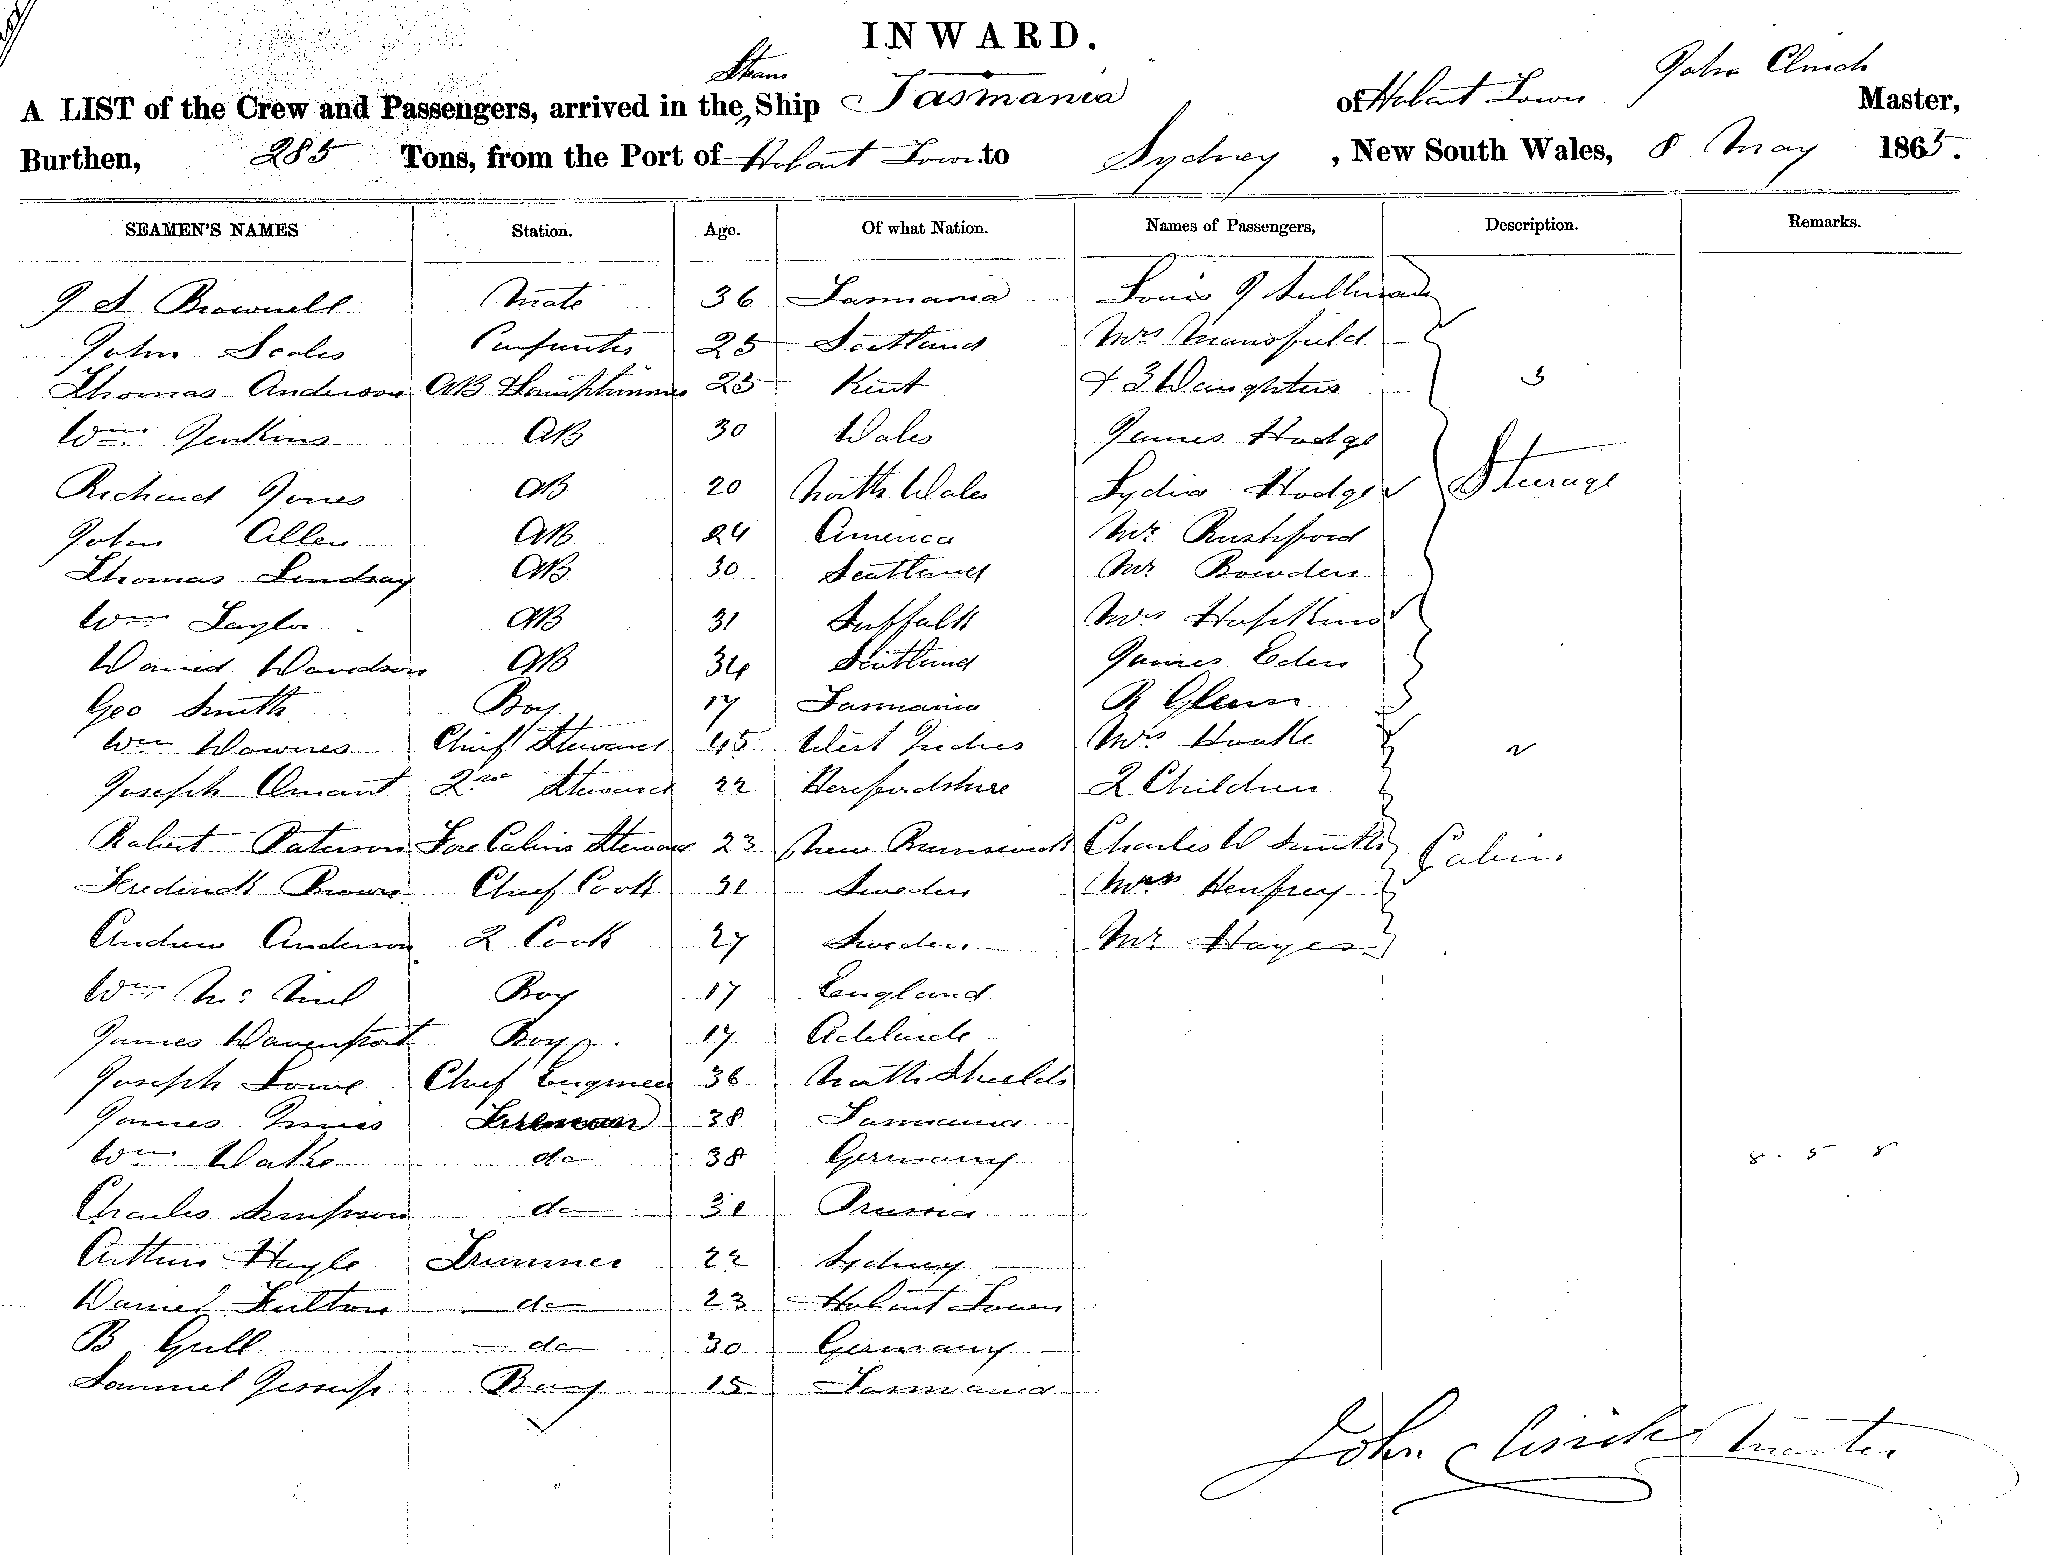 INWARD.
Steam
A LIST of the Crew and Passengers, arrived in the Ship Tasmania of Hobart Town John Clinch Master,
Burthen, 285 Tons, from the Port of Hobart Town to Sydney, New South Wales, 8 May 1865.
SEAMEN'S NAMES Station. Age. Of what Nation. Names of Passengers, Description. Remarks.
Brownell Mate 36 Tasmania Louis
John Scoles Carpenter 25 Scotland Mrs Mansfield
Thomas Anderson AB 25 Kent & 3 Daughters 3
Wm Jenkins AB 30 Wales James Hodge
Richard Jones AB 20 North Wales Lydia Hodge Steerage
John Allen AB 24 America Mr Rushford
Thomas Lindsay AB 30 Scotland Mr Bowden
Wm Taylor AB 31 Suffolk Mrs Hopkins
David Davidson AB 34 Scotland James Eden
Geo Smith Boy 17 Tasmania R Glenn
Wm Downes Chief Steward 45 West Indies Mrs
Joseph 2nd Steward 22 Herefordshire 2 Children
Robert Paterson Fore Cabin Steward 23 New Brunswick Charles W Smith Cabin
Frederick Brown Chief Cook 31 Sweden Henfrey
Andrew Anderson 2 Cook 27 Sweden Mr Hayes
Wm Boy 17 England
James Davenport Boy 17 Adelaide
Joseph Lowe Chief Engineer 36 North Shields
James Fireman 38 Tasmania
Wm Wake do 38 Germany
Charles Simpson do 31 Prussia
Arthur Hayle Trimmer 22 Sydney
Daniel Fulton do 23 Hobart Town
B Grill do 30 Germany
Samuel Jessup Boy 15 Tasmania
John Clinch Master